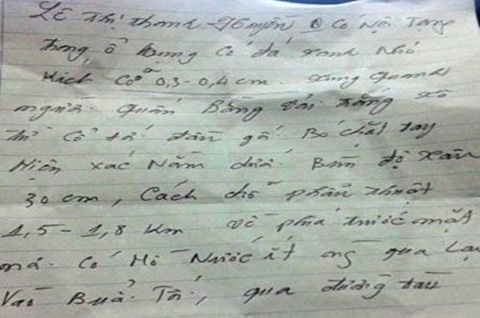 Lê Thị thanh Huyền ở Có Nội Tạng
trong ổ bụng Có đá xanh Nhỏ
Kích Cỡ 0,3 - 0,4 cm. xung quanh
người. quấn Bằng vải trắng xô
thi Có tấ đầu gấ Bó chặt tay
Hiện xác Nằm dưới Bùn độ sâu
30 cm, Cách chỗ phẩu thuật
1,5 - 1,8 km về phía trước mặt
má. Có Hố Nước ít ng qua Lại
Vào Buổi Tối, qua đường tàu